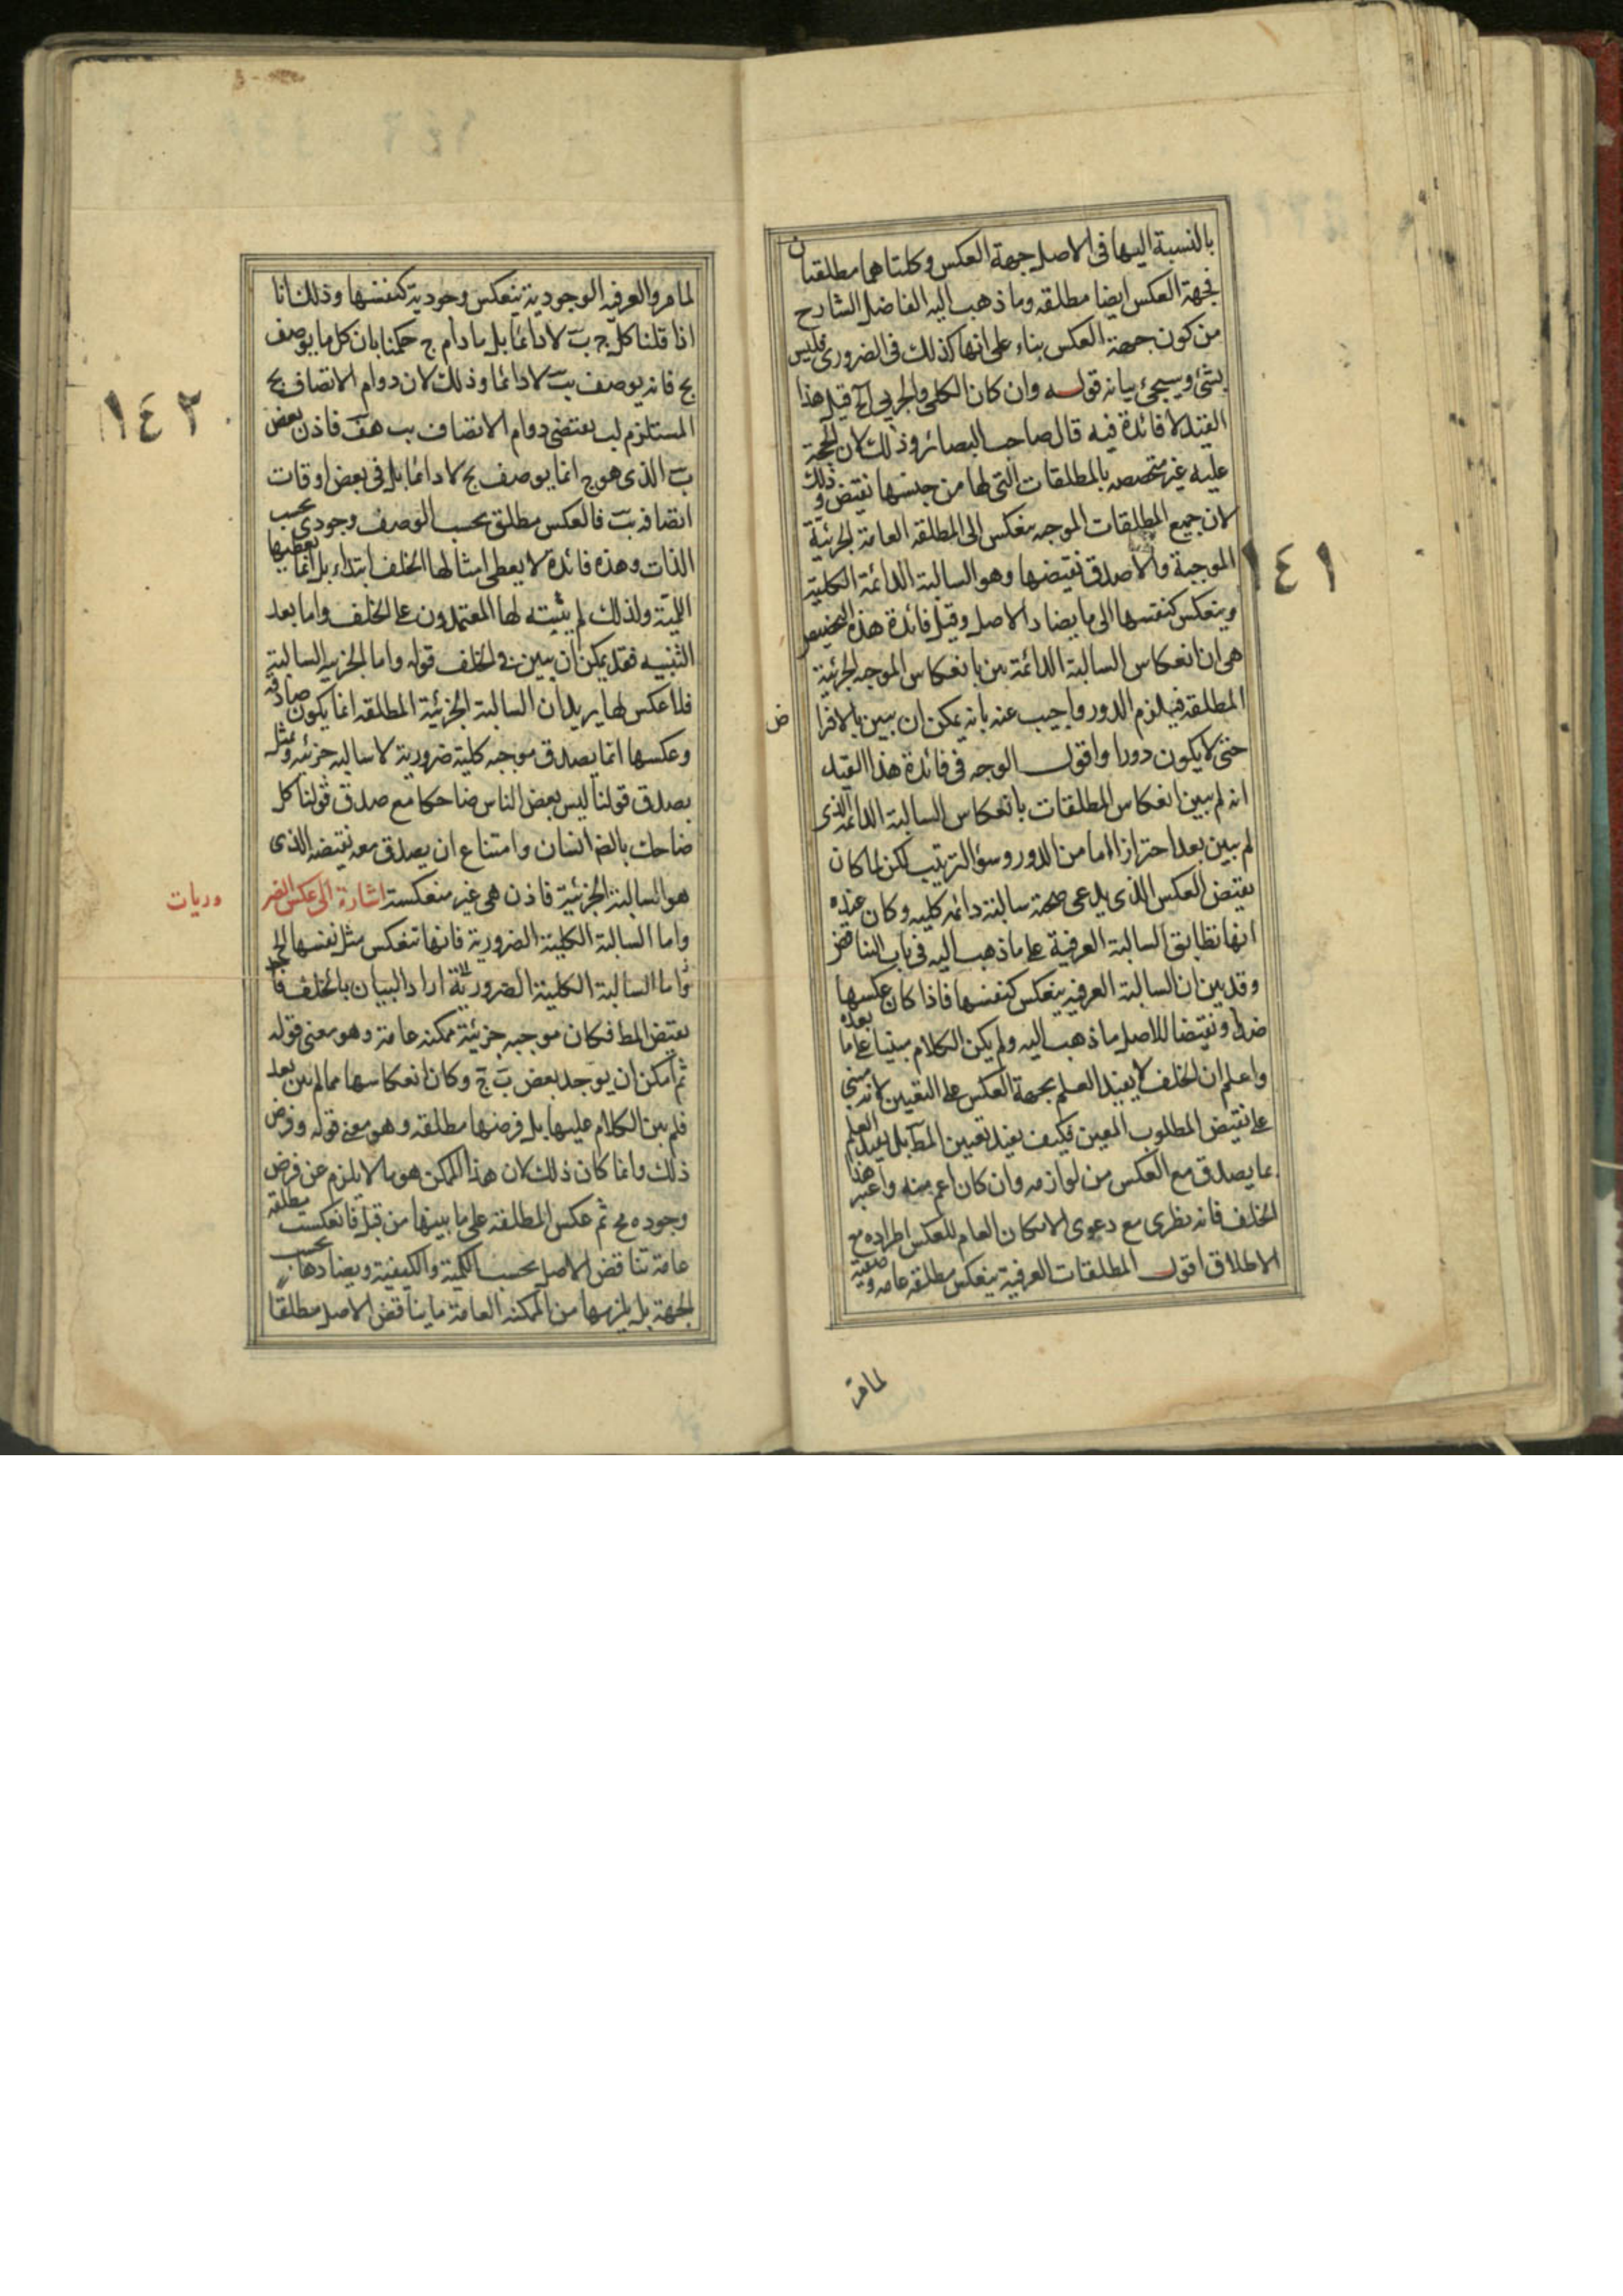 بالنسبة اليها فى الاصل جهة العكس وكلتاهما مطلقتان
فجهة العكس ايضا مطلقه وما ذهب اليه الفاضل الشارح
من كون جهة العكس بناء على انها كذلك فى الضرورى فليس
بشئ وسيجئ بيانه قوله وان كان الكلى والجزيى آلخ قيل هذا
القيد لا فائدة فيه قال صاحب البصائر وذلك لان الحجة
عليه غير متخصصه بالمطلقات التى لها من جنسها نقيض وذلك
لان جميع المطلقات الموجه ينعكس الى المطلقه العامة الجزئية
الموجبة والا صدق نقيضها وهو السالبة الدائمة الكلية
وينعكس كنفسها الى ما يضاد الاصل وقيل فائدة هذه التخصيص
هى ان انعكاس السالبة الدائمة بين بانعكاس الموجه الجزئية
المطلقه فيلزم الدور واجيب عنه بانه يمكن ان يبين بالافرا
ض
حتى لا يكون دورا واقول الوجه فى فائدة هذا القيد
انه لم يبين انعكاس المطلقات بانعكاس السالبة الدائمه الذى
لم يبين بعد احترازا اما من الدور وسؤ الترتيب لكن لما كان
نقيض العكس الذى يدعى صحته سالبة دائمه كليه وكان عنده
انها تطابق السالبة العرفية على ما ذهب اليه فى باب التناقض
وقد بين ان السالبة العرفيه ينعكس كنفسها فاذا كان عكسها
ضدا ونقيضا للاصل ما ذهب اليه ولم يكن الكلام مبنيا على ما بعده
واعلم ان الخلف لا يفيد العلم بجهة العكس على التعيين لانه مبنى
على نقيض المطلوب المعين فكيف يفيد تعيين المط بل يفيد العلم
بما يصدق مع العكس من لوازمه وان كان اعم منه واعتبر هذا
الخلف فانه يطرى مع دعوى الامكان العام للعكس اطراده مع
الاطلاق اقول المطلقات العرفية ينعكس مطلقه عامه وصفية
لما مر
١٤١
لما مر والعرفيه الوجودية ينعكس وجودية كنفسها وذلك انا
اذا قلنا كل ج ب لا دائما بل ما دام ج حكمنا بان كل ما يوصف
بج فانه يوصف بب لا دائما وذلك لان دوام الاتصاف بج
المستلزم لب يقتضى دوام الاتصاف بب هف فاذن بعض
ب الذى هو ج انما يوصف بج لا دائما بل فى بعض اوقات
اتصافه بب فالعكس مطلق بحسب الوصف وجودى بحسب
الذات وهذه فائدة لا يعطى امثالها الخلف ابتداء بل انما يعطيها
اللمية ولذلك لم يثبته لها المعتمدون على الخلف واما بعد
التنبيه فقد يمكن ان يبين فى الخلف قوله واما الجزيه السالبة
فلا عكس لها يريد ان السالبة الجزئية المطلقه انما يكون صادقه
وعكسها انما يصدق موجبه كلية ضرورية لا سالبه جزئيه وتمثل
بصدق قولنا ليس بعض الناس ضاحكا مع صدق قولنا كل
ضاحك بالضه انسان وامتناع ان يصدق معه نقيضه الذى
هو السالبة الجزئية فاذن هى غير منعكسة اشارة الى عكس الضر
وريات
واما السالبة الكلية الضرورية فانها تنعكس مثل نفسها الخ
واما السالبة الكلية الضرورية اراد البيان بالخلف فاخذ
نقيض المط فكان موجبه جزئية ممكنه عامة وهو معنى قوله
ثم امكن ان يوجد بعض ب ج وكان انعكاسها مما لم يبين بعد
فلم يبن الكلام عليها بل فرضها مطلقه وهو معنى قوله وفرض
ذلك وانما كان ذلك لان هذا الممكن هو ما لا يلزم عن فرض
وجوده مح ثم عكس المطلقه على ما بينها من قبل فانعكست مطلقه
عامة تناقض الاصل بحسب الكمية والكيفية ويضادها بحسب
الجهة بل يلزمها من الممكنه العامة ما يناقض الاصل مطلقا
١٤٢